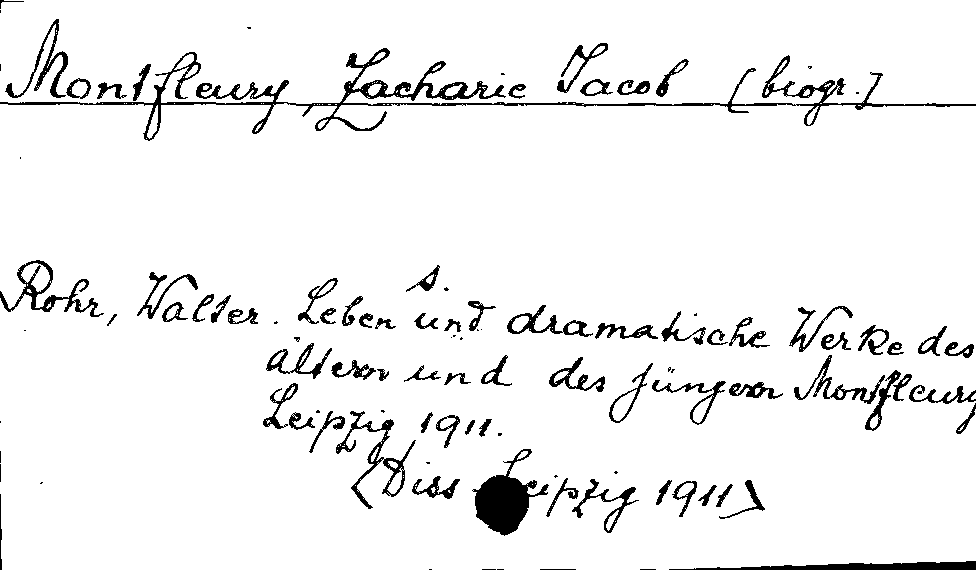 Montfleury, Zacharie Jacob [biogr.]
s.
Rohr, Walter. Leben und dramatische Werke des
ältern und des jüngern Montfleury
Leipzig 1911.
<Diss Leipzig 1911>